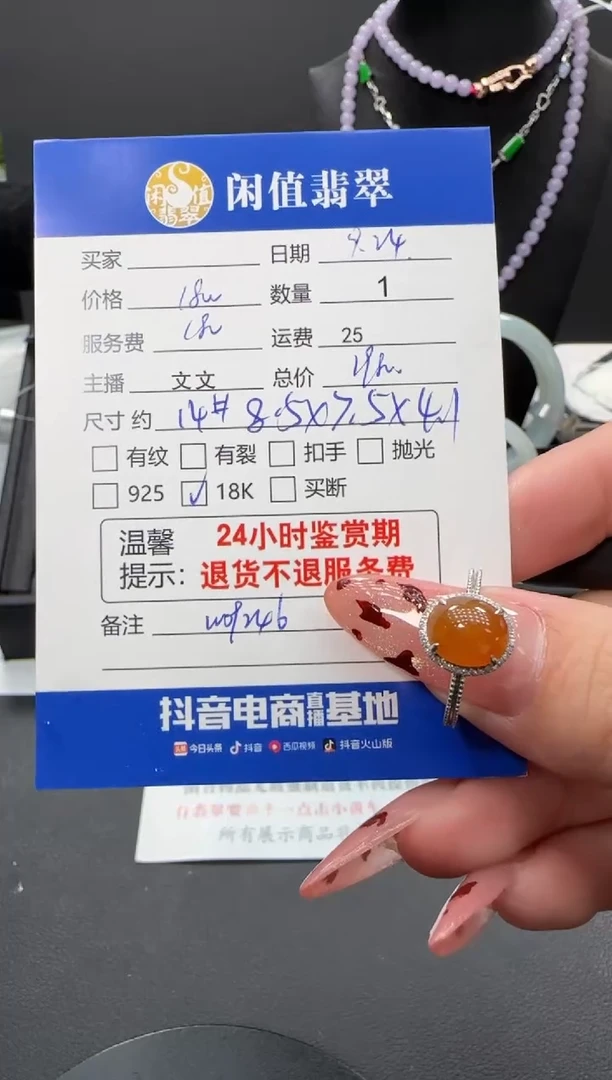 闲值翡翠
闲值翡翠
买家 日期 9.24.
价格 数量 1
服务费 运费 25
主播 文文 总价
尺寸 约 14# 8.5X7.5X4.1
有纹 有裂 扣手 抛光
925 ✓ 18K 买断
温馨提示: 24小时鉴赏期
退货不退服务费
备注
抖音电商直播基地
头条 今日头条 抖音 西瓜视频 抖音火山版
所有展示商品